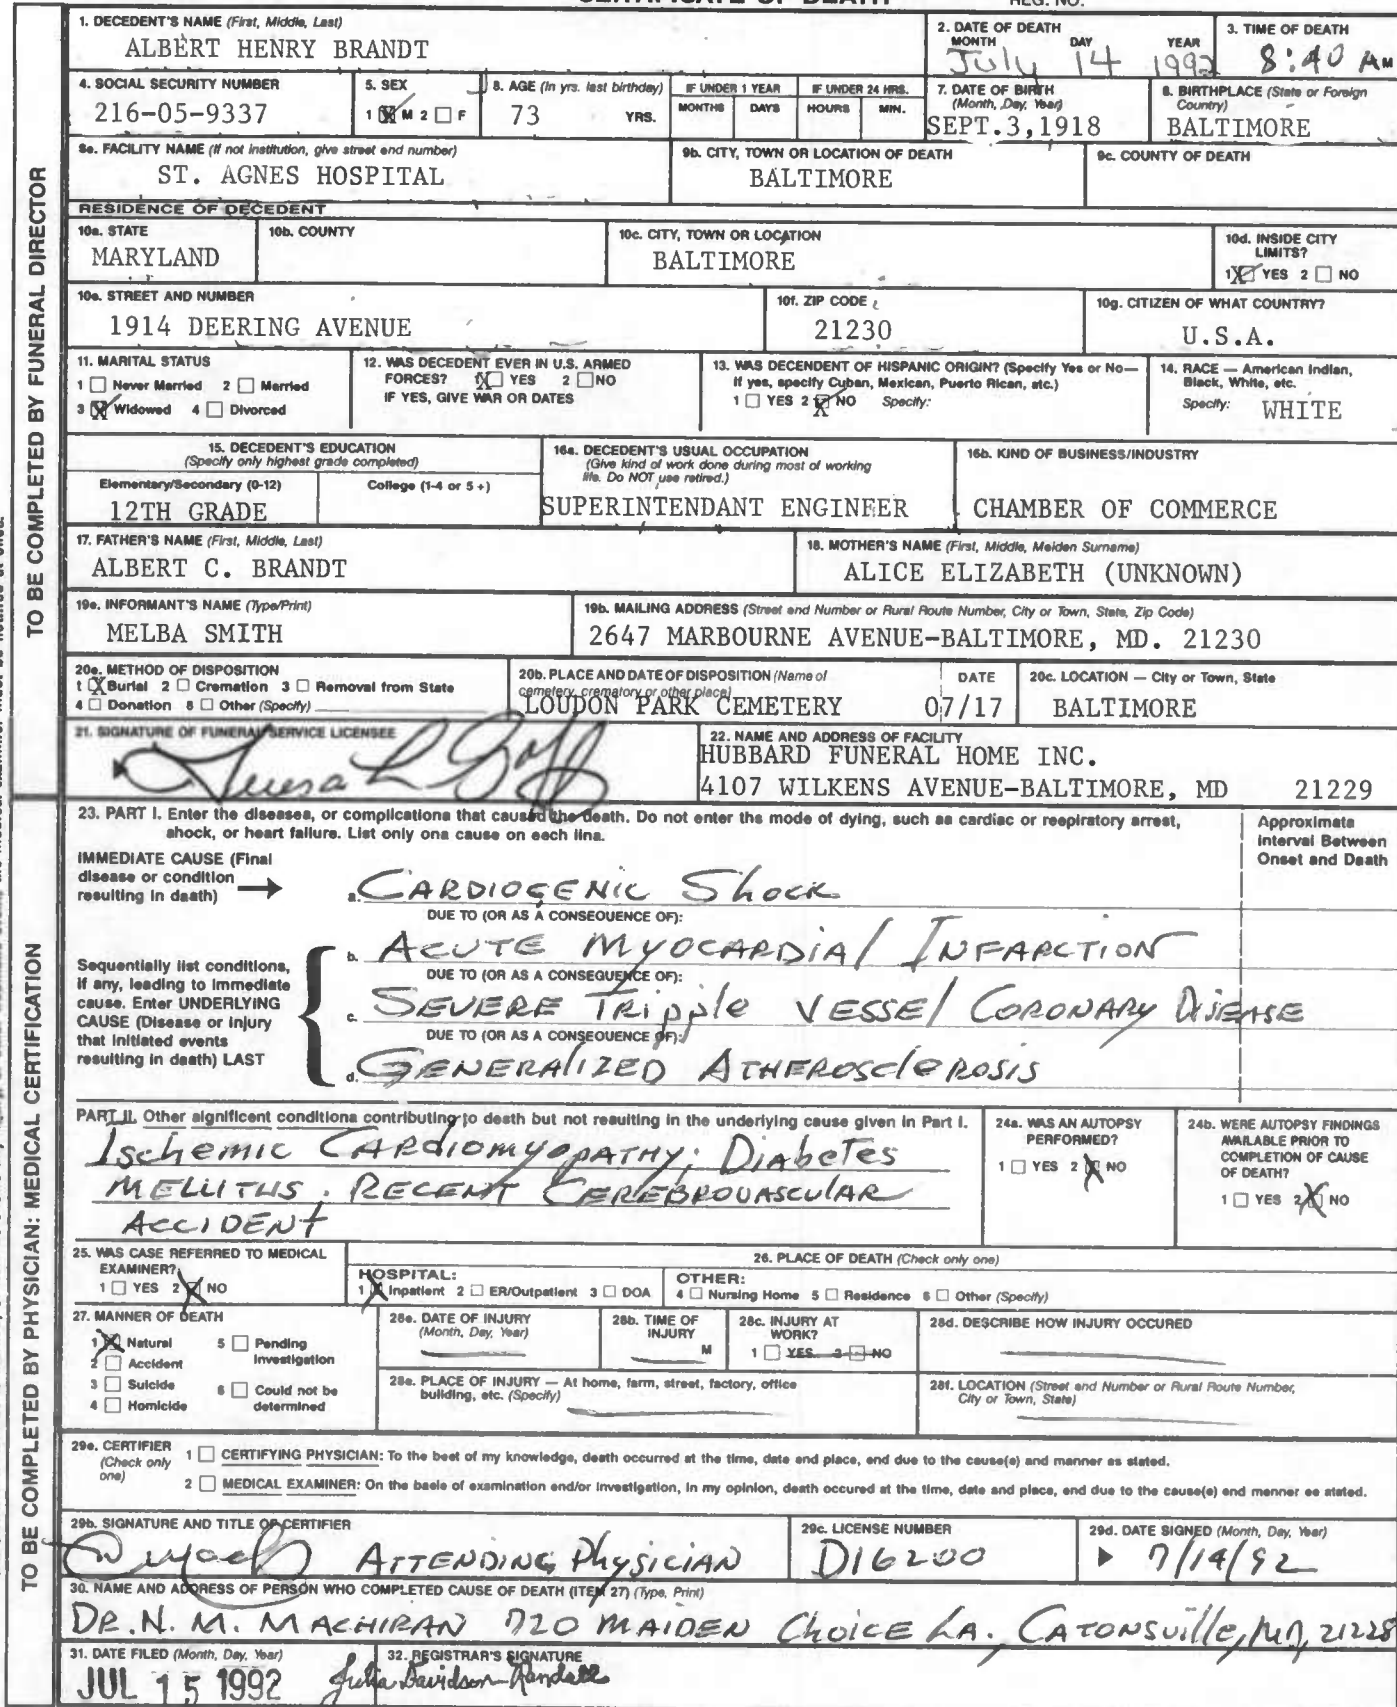 CERTIFICATE OF DEATH REG. NO.
1. DECEDENT'S NAME (First, Middle, Last)
ALBERT HENRY BRANDT
2. DATE OF DEATH
MONTH DAY YEAR
July 14 1992
3. TIME OF DEATH
8:40 AM
4. SOCIAL SECURITY NUMBER
216-05-9337
5. SEX
1 X M 2 F
8. AGE (In yrs. last birthday)
73 YRS.
IF UNDER 1 YEAR
MONTHS DAYS
IF UNDER 24 HRS.
HOURS MIN.
7. DATE OF BIRTH
(Month, Day, Year)
SEPT.3,1918
8. BIRTHPLACE (State or Foreign
Country)
BALTIMORE
9a. FACILITY NAME (If not institution, give street and number)
ST. AGNES HOSPITAL
9b. CITY, TOWN OR LOCATION OF DEATH
BALTIMORE
9c. COUNTY OF DEATH
RESIDENCE OF DECEDENT
10a. STATE
MARYLAND
10b. COUNTY
10c. CITY, TOWN OR LOCATION
BALTIMORE
10d. INSIDE CITY
LIMITS?
1 X YES 2 NO
10e. STREET AND NUMBER
1914 DEERING AVENUE
10f. ZIP CODE
21230
10g. CITIZEN OF WHAT COUNTRY?
U.S.A.
11. MARITAL STATUS
1 Never Married 2 Married
3 X Widowed 4 Divorced
12. WAS DECEDENT EVER IN U.S. ARMED
FORCES? 1 X YES 2 NO
IF YES, GIVE WAR OR DATES
13. WAS DECENDENT OF HISPANIC ORIGIN? (Specify Yes or No—
If yes, specify Cuban, Mexican, Puerto Rican, etc.)
1 YES 2 X NO Specify:
14. RACE — American Indian,
Black, White, etc.
Specify: WHITE
15. DECEDENT'S EDUCATION
(Specify only highest grade completed)
Elementary/Secondary (0-12) College (1-4 or 5+)
12TH GRADE
16a. DECEDENT'S USUAL OCCUPATION
(Give kind of work done during most of working
life. Do NOT use retired.)
SUPERINTENDANT ENGINEER
16b. KIND OF BUSINESS/INDUSTRY
CHAMBER OF COMMERCE
17. FATHER'S NAME (First, Middle, Last)
ALBERT C. BRANDT
18. MOTHER'S NAME (First, Middle, Maiden Surname)
ALICE ELIZABETH (UNKNOWN)
19a. INFORMANT'S NAME (Type/Print)
MELBA SMITH
19b. MAILING ADDRESS (Street and Number or Rural Route Number, City or Town, State, Zip Code)
2647 MARBOURNE AVENUE-BALTIMORE, MD. 21230
20a. METHOD OF DISPOSITION
1 X Burial 2 Cremation 3 Removal from State
4 Donation 5 Other (Specify)
20b. PLACE AND DATE OF DISPOSITION (Name of
cemetery, crematory or other place)
LOUDON PARK CEMETERY
DATE
07/17
20c. LOCATION — City or Town, State
BALTIMORE
21. SIGNATURE OF FUNERAL SERVICE LICENSEE
Teresa L Goff
22. NAME AND ADDRESS OF FACILITY
HUBBARD FUNERAL HOME INC.
4107 WILKENS AVENUE-BALTIMORE, MD 21229
TO BE COMPLETED BY FUNERAL DIRECTOR
23. PART I. Enter the diseases, or complications that caused the death. Do not enter the mode of dying, such as cardiac or respiratory arrest,
shock, or heart failure. List only one cause on each line.
Approximate
Interval Between
Onset and Death
IMMEDIATE CAUSE (Final
disease or condition
resulting in death)
a. CARDIOGENIC Shock
DUE TO (OR AS A CONSEQUENCE OF):
Sequentially list conditions,
if any, leading to immediate
cause. Enter UNDERLYING
CAUSE (Disease or injury
that initiated events
resulting in death) LAST
b. ACUTE MYOCARDIAL INFARCTION
DUE TO (OR AS A CONSEQUENCE OF):
c. SEVERE TRIPPLE VESSEL CORONARY DISEASE
DUE TO (OR AS A CONSEQUENCE OF):
d. GENERALIZED ATHEROSCLEROSIS
PART II. Other significant conditions contributing to death but not resulting in the underlying cause given in Part I.
Ischemic CARDIOMYOPATHY; Diabetes
MELLITUS. RECENT CEREBROVASCULAR
ACCIDENT
24a. WAS AN AUTOPSY
PERFORMED?
1 YES 2 X NO
24b. WERE AUTOPSY FINDINGS
AVAILABLE PRIOR TO
COMPLETION OF CAUSE
OF DEATH?
1 YES 2 X NO
25. WAS CASE REFERRED TO MEDICAL
EXAMINER?
1 YES 2 X NO
26. PLACE OF DEATH (Check only one)
HOSPITAL:
1 X Inpatient 2 ER/Outpatient 3 DOA
OTHER:
4 Nursing Home 5 Residence 6 Other (Specify)
27. MANNER OF DEATH
1 X Natural 5 Pending
2 Accident Investigation
3 Suicide 6 Could not be
4 Homicide determined
28a. DATE OF INJURY
(Month, Day, Year)
28b. TIME OF
INJURY
M
28c. INJURY AT
WORK?
1 YES 2 NO
28d. DESCRIBE HOW INJURY OCCURED
28e. PLACE OF INJURY — At home, farm, street, factory, office
building, etc. (Specify)
28f. LOCATION (Street and Number or Rural Route Number,
City or Town, State)
29a. CERTIFIER
(Check only
one)
1 CERTIFYING PHYSICIAN: To the best of my knowledge, death occurred at the time, date and place, and due to the cause(s) and manner as stated.
2 MEDICAL EXAMINER: On the basis of examination and/or investigation, in my opinion, death occured at the time, date and place, and due to the cause(s) and manner as stated.
29b. SIGNATURE AND TITLE OF CERTIFIER
ATTENDING Physician
29c. LICENSE NUMBER
D16200
29d. DATE SIGNED (Month, Day, Year)
7/14/92
30. NAME AND ADDRESS OF PERSON WHO COMPLETED CAUSE OF DEATH (ITEM 27) (Type, Print)
DR. N. M. MACHIRAN 720 MAIDEN Choice LA. CATONSville, MD, 21228
31. DATE FILED (Month, Day, Year)
JUL 15 1992
32. REGISTRAR'S SIGNATURE
Julia Davidson-Randall
TO BE COMPLETED BY PHYSICIAN: MEDICAL CERTIFICATION